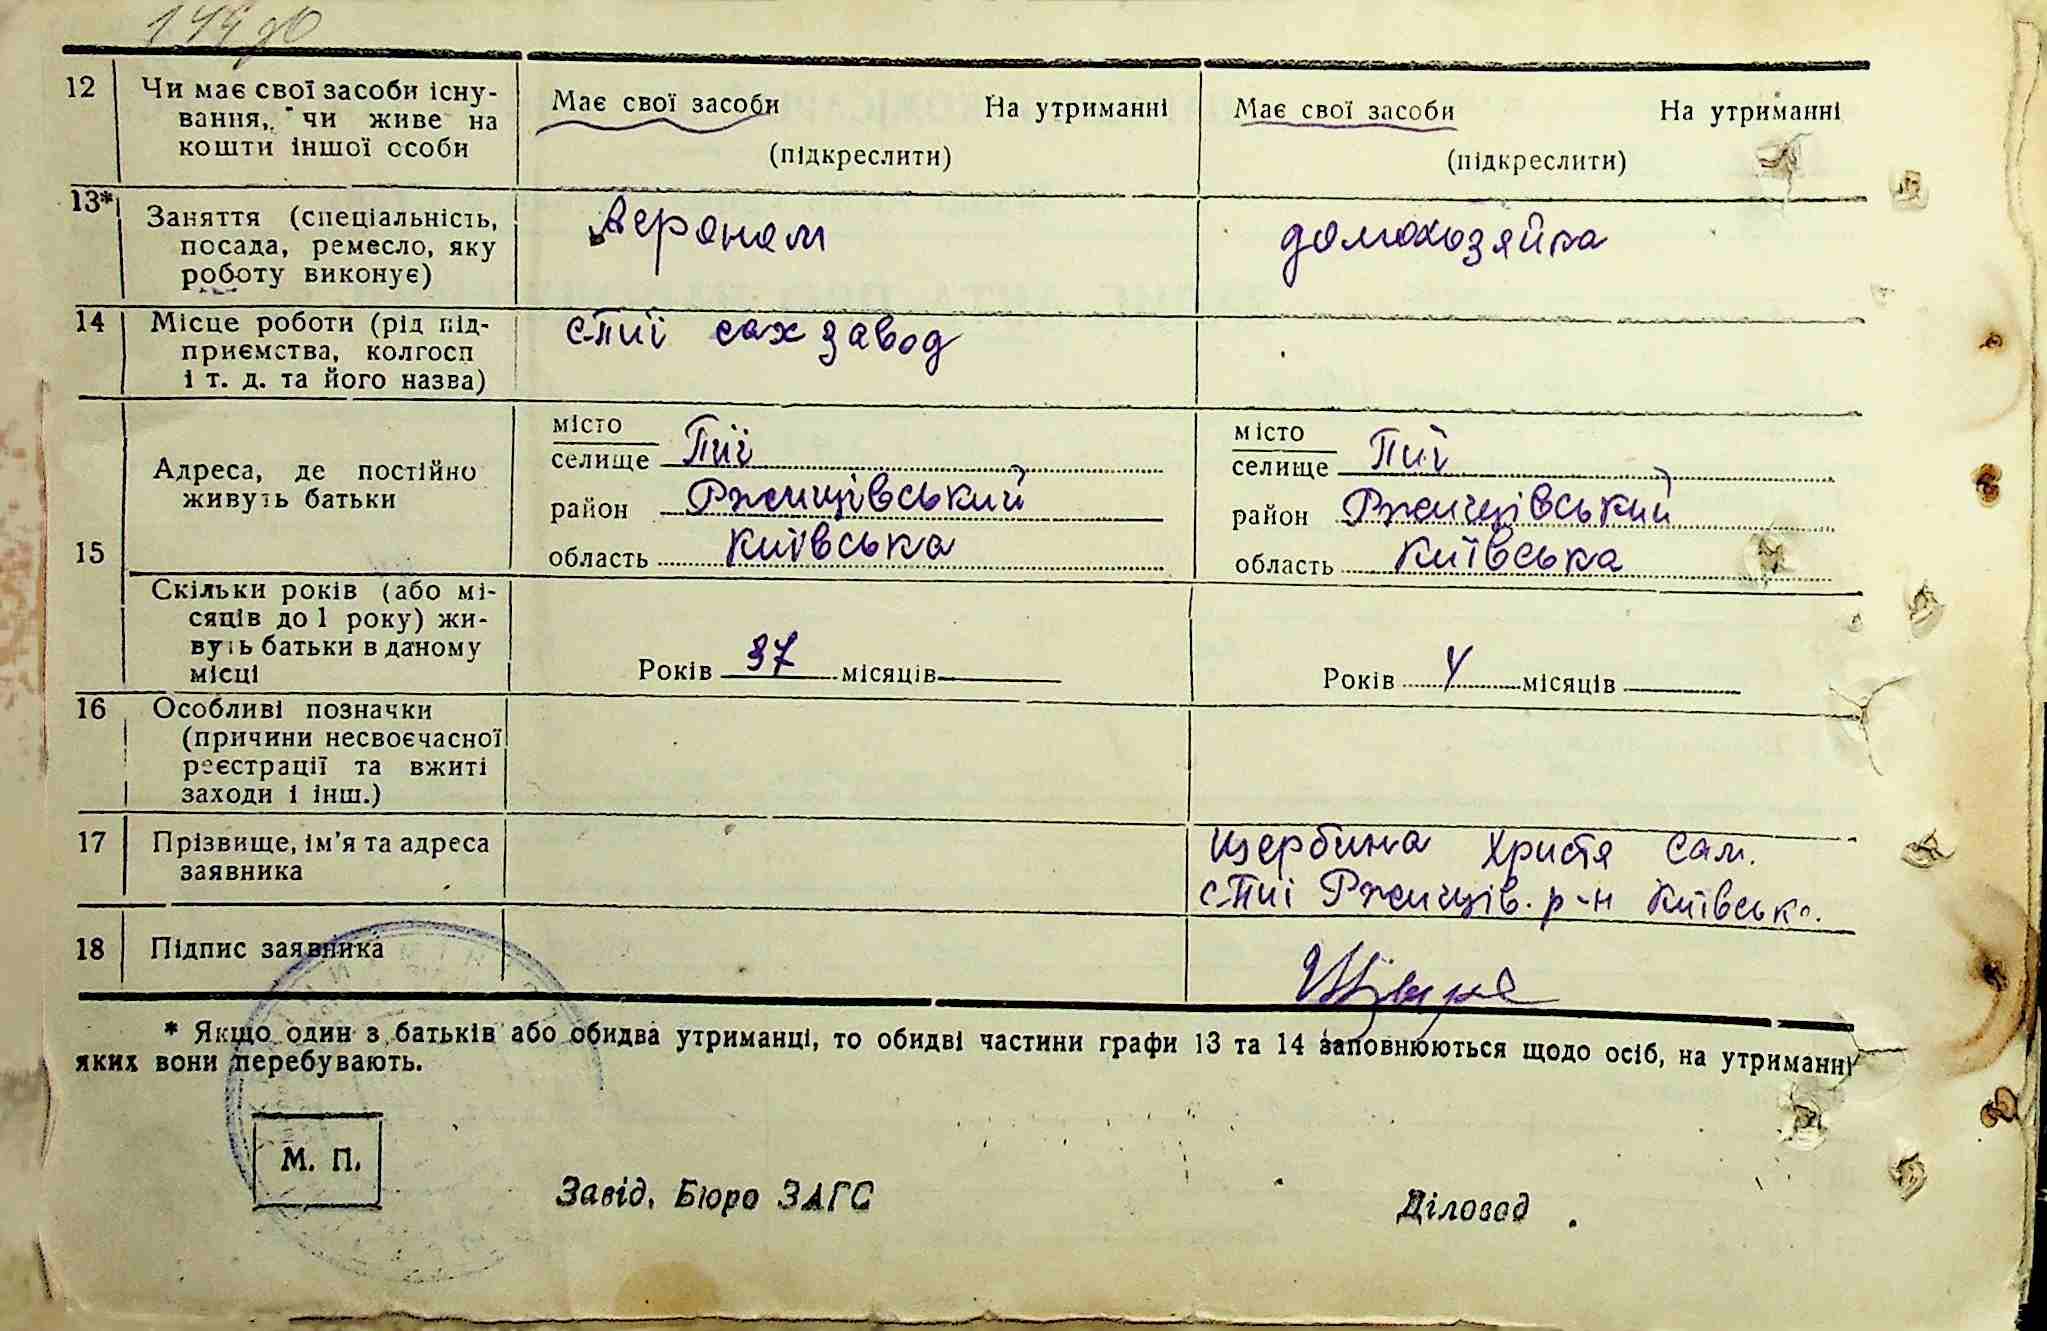 12 Чи має свої засоби існу-
вання, чи живе на
кошти іншої особи
Має свої засоби На утриманні
(підкреслити)
Має свої засоби На утриманні
(підкреслити)
13* Заняття (спеціальність,
посада, ремесло, яку
роботу виконує)
домохозяйка
14 Місце роботи (рід під-
приємства, колгосп
і т. д. та його назва)
с-Пиї сахзавод
15 Адреса, де постійно
живуть батьки
місто
селище Пиї
район Ржищівський
область Київська
місто
селище Пиї
район Ржищівський
область Київська
Скільки років (або мі-
сяців до 1 року) жи-
вуть батьки в даному
місці
Років 37 місяців
Років 4 місяців
16 Особливі позначки
(причини несвоєчасної
реєстрації та вжиті
заходи і інш.)
17 Прізвище, ім'я та адреса
заявника
Щербина Христя Сам.
с-Пиі Ржищів. р-н Київськ.
18 Підпис заявника
* Якщо один з батьків або обидва утриманці, то обидві частини графи 13 та 14 заповнюються щодо осіб, на утриманні
яких вони перебувають.
М. П.
Завід. Бюро ЗАГС
Діловод